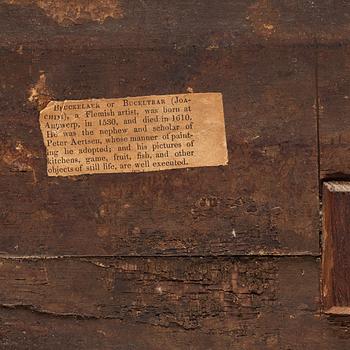 BUECKELAER OR BUCKELTRAR (JOA-
CHIM), a Flemish artist, was born at
Antwerp, in 1530, and died in 1610.
He was the nephew and scholar of
Peter Aertsen, whose manner of paint-
ing he adopted; and his pictures of
kitchens, game, fruit, fish, and other
objects of still life, are well executed.